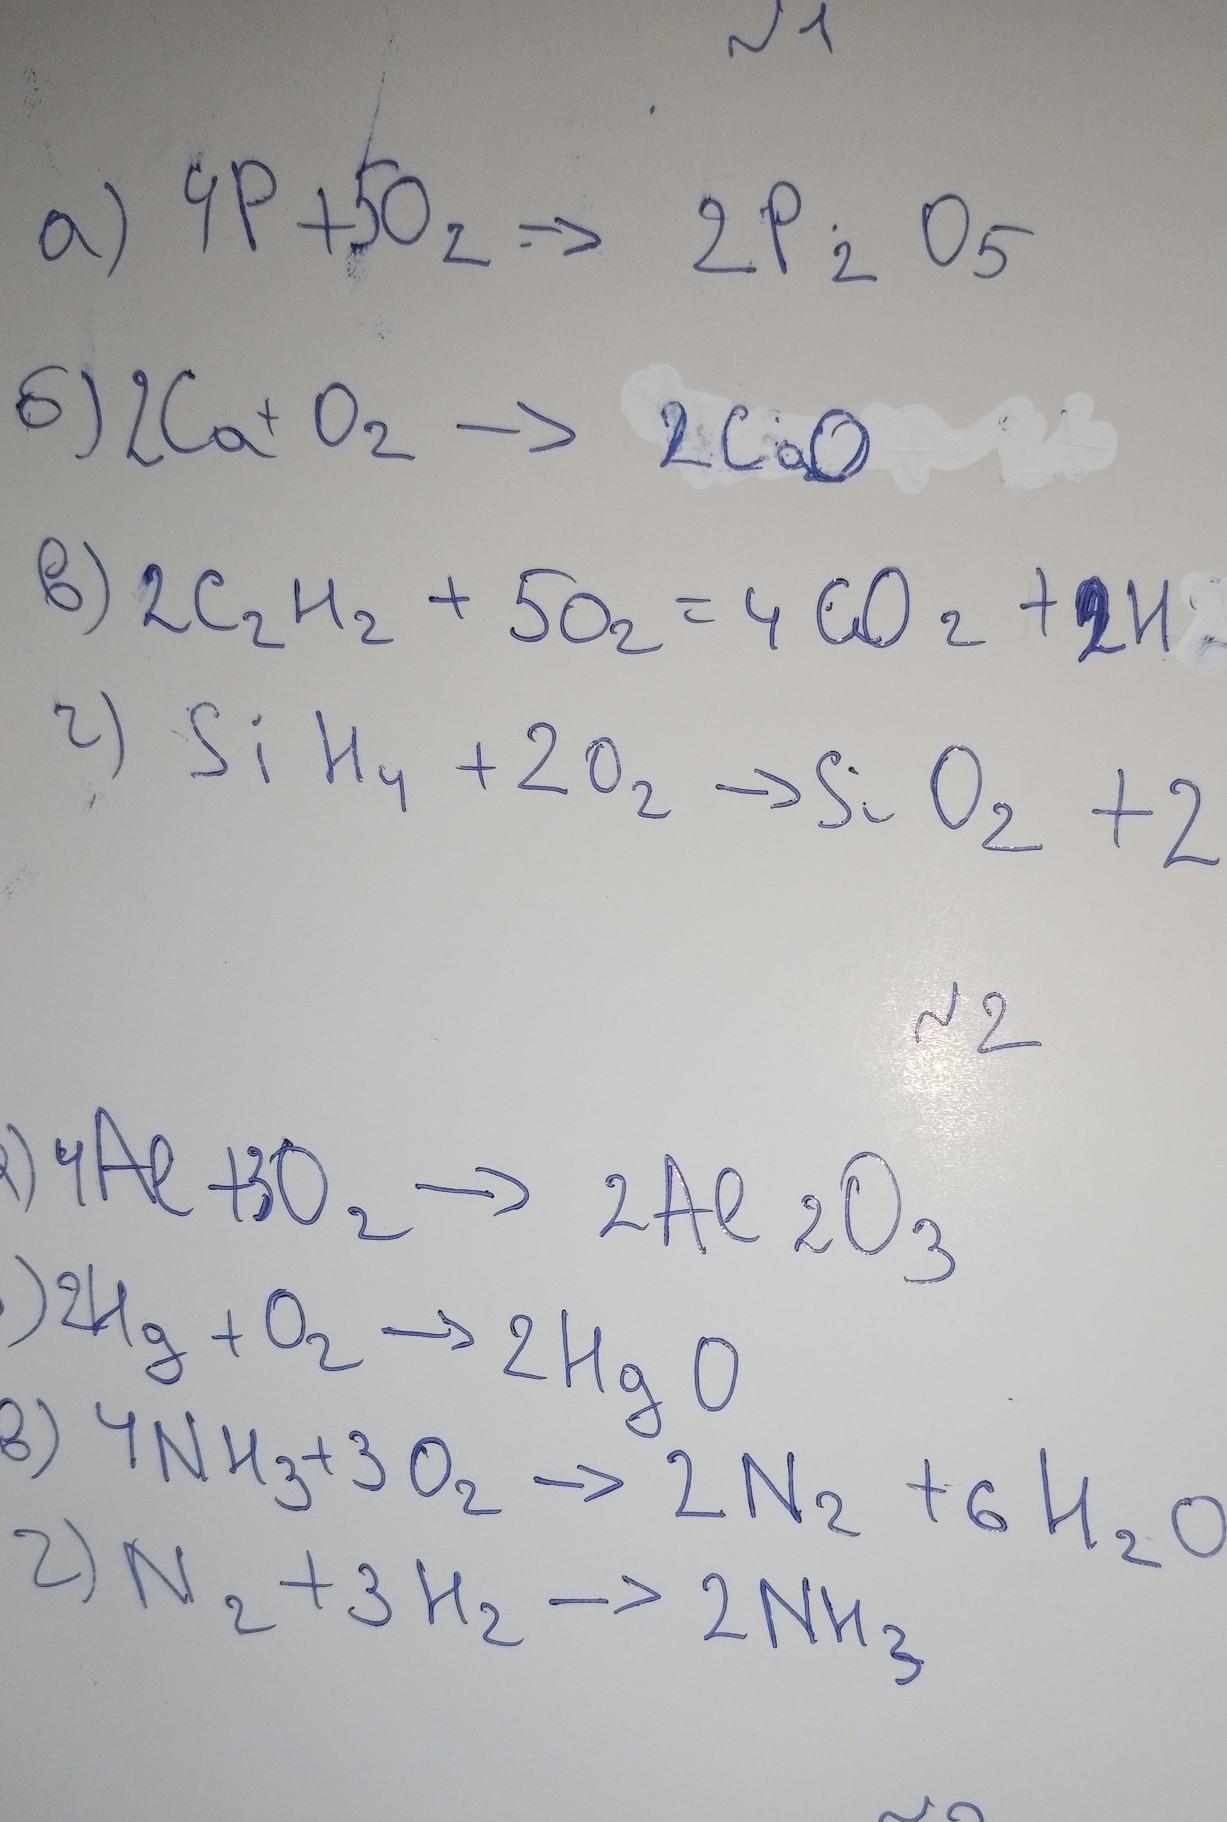 №1
а) 4P + 5O₂ → 2P₂O₅
б) 2Ca + O₂ → 2CaO
в) 2C₂H₂ + 5O₂ = 4CO₂ + 2H₂
г) SiH₄ + 2O₂ → SiO₂ + 2
№2
) 4Al + 3O₂ → 2Al₂O₃
) 2Hg + O₂ → 2HgO
в) 4NH₃ + 3O₂ → 2N₂ + 6H₂O
г) N₂ + 3H₂ → 2NH₃